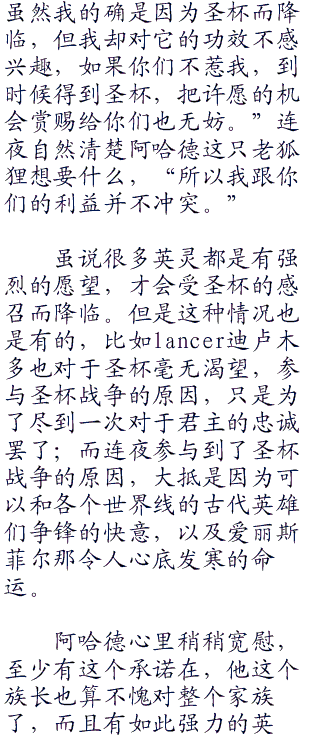 虽然我的确是因为圣杯而降
临，但我却对它的功效不感
兴趣，如果你们不惹我，到
时候得到圣杯，把许愿的机
会赏赐给你们也无妨。”连
夜自然清楚阿哈德这只老狐
狸想要什么，“所以我跟你
们的利益并不冲突。”
虽说很多英灵都是有强
烈的愿望，才会受圣杯的感
召而降临。但是这种情况也
是有的，比如lancer迪卢木
多也对于圣杯毫无渴望，参
与圣杯战争的原因，只是为
了尽到一次对于君主的忠诚
罢了；而连夜参与到了圣杯
战争的原因，大抵是因为可
以和各个世界线的古代英雄
们争锋的快意，以及爱丽斯
菲尔那令人心底发寒的命
运。
阿哈德心里稍稍宽慰，
至少有这个承诺在，他这个
族长也算不愧对整个家族
了，而且有如此强力的英